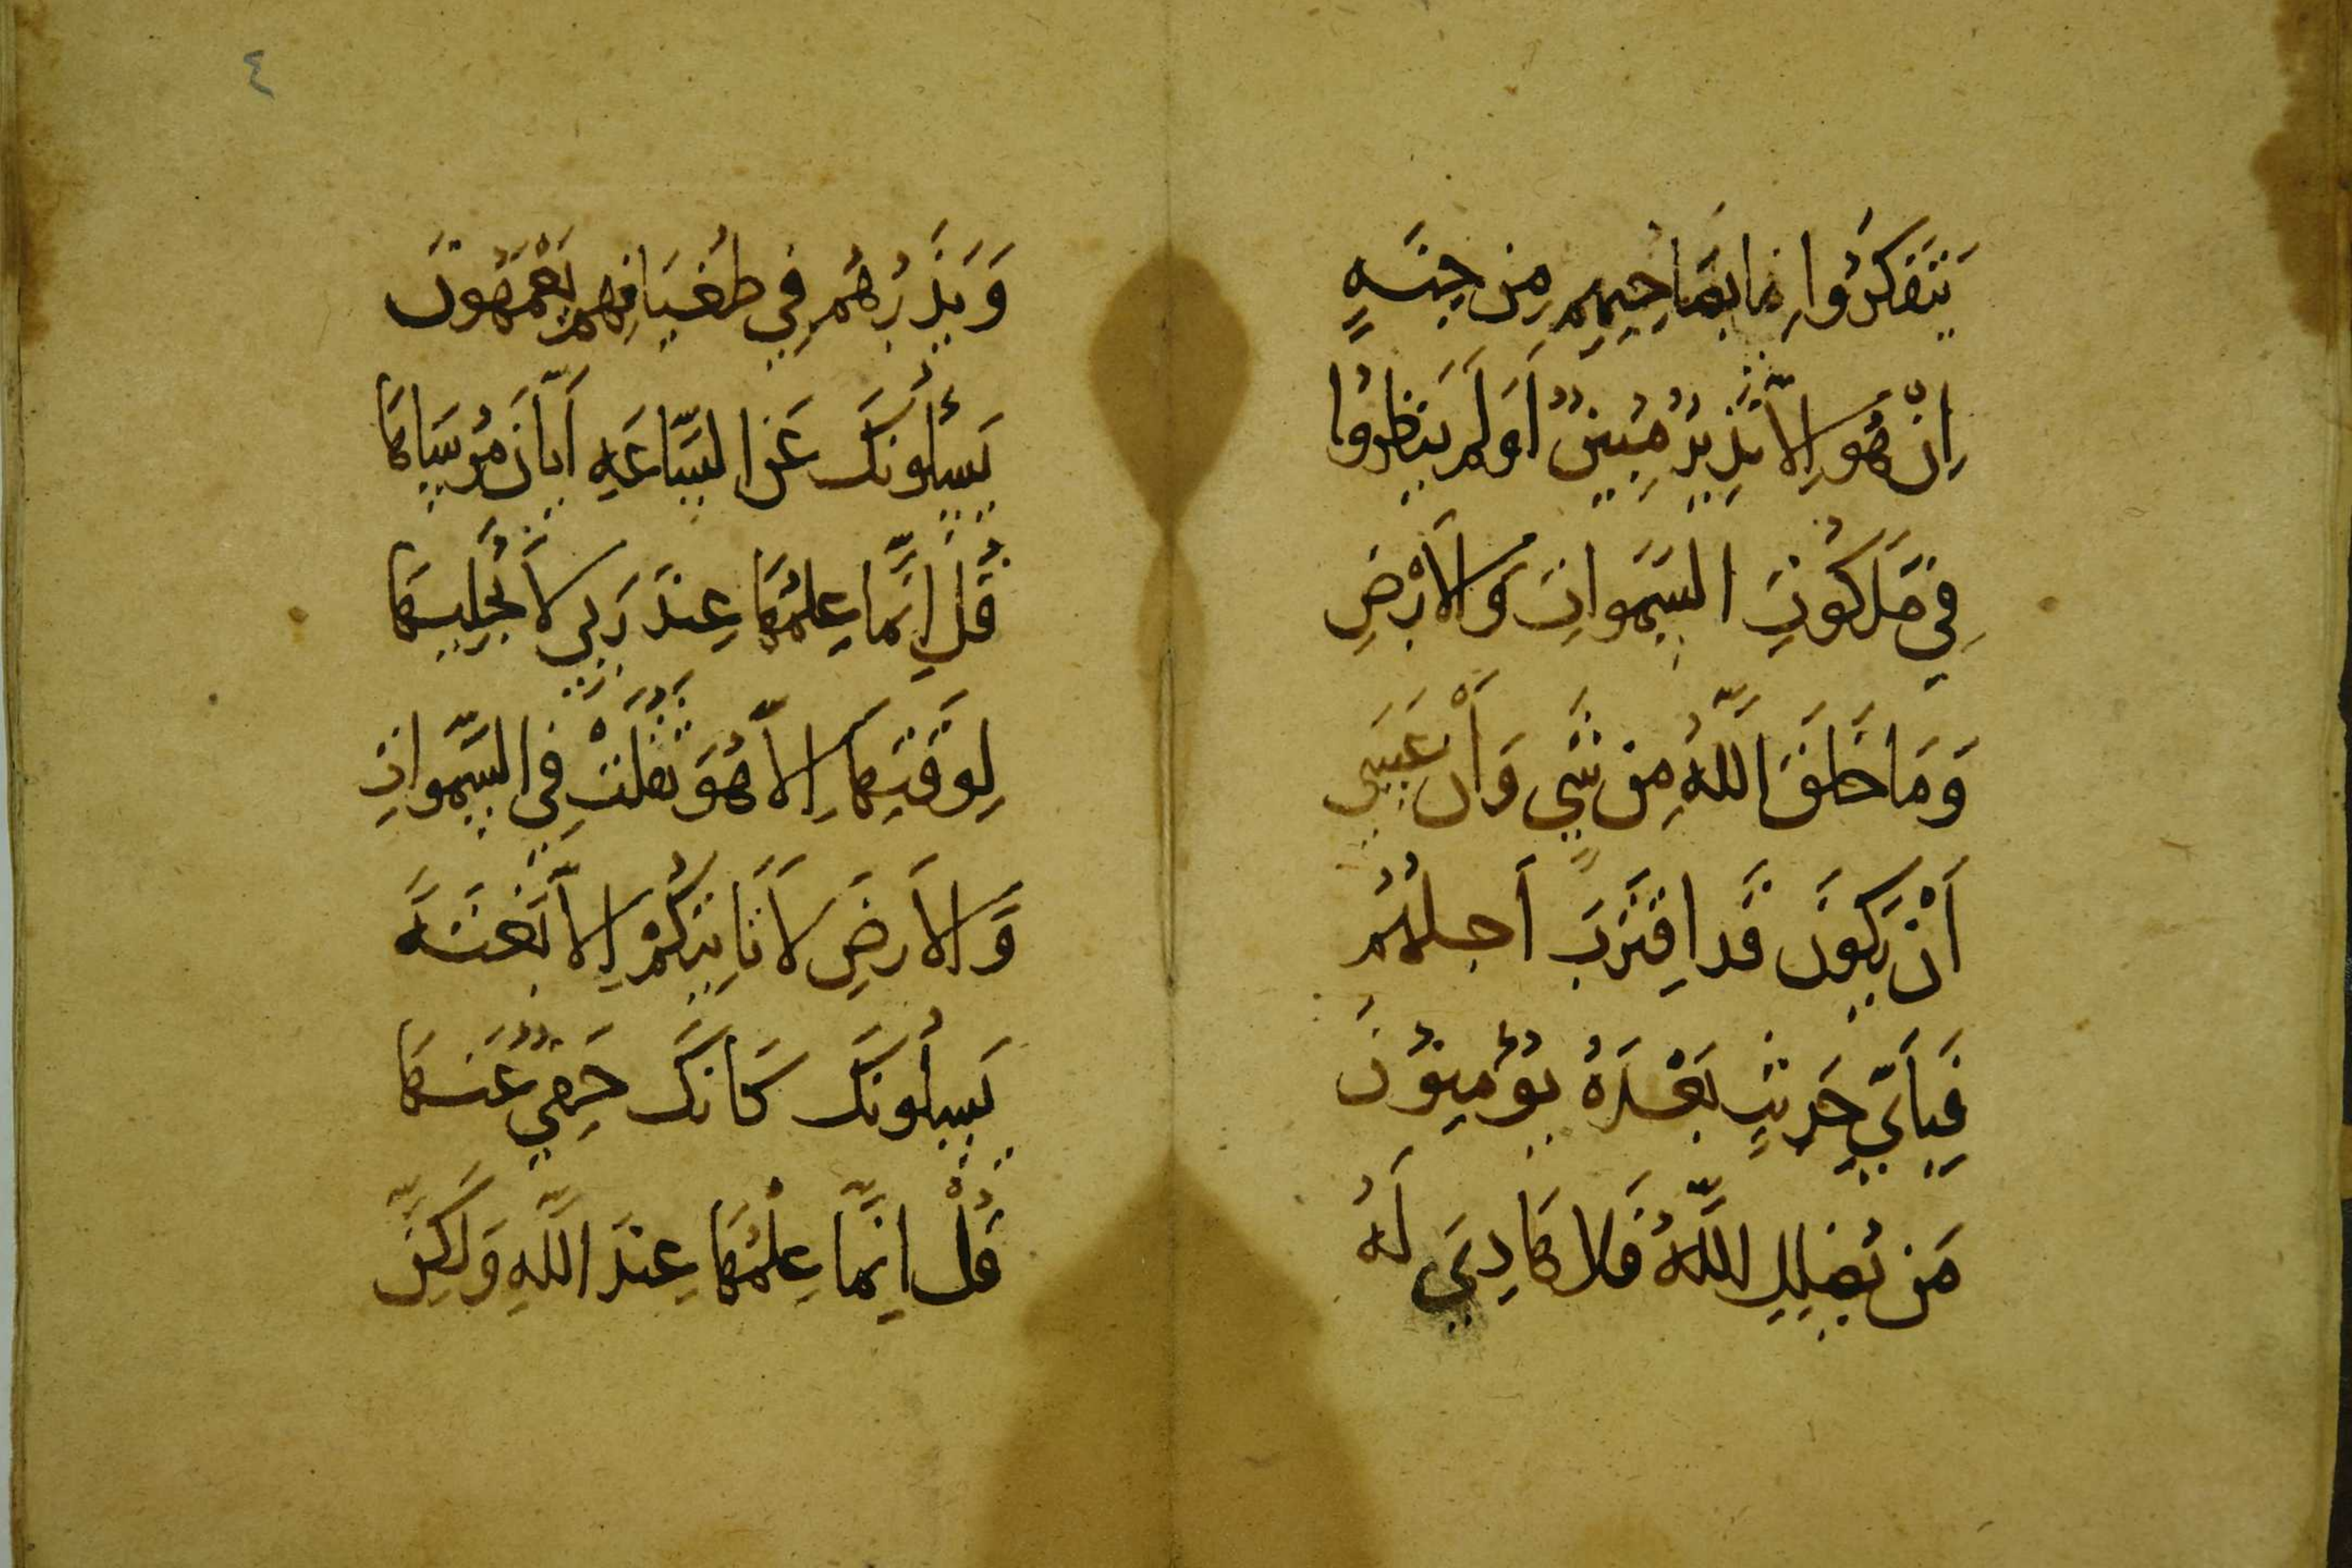 يَتَفَكَّرُوا مَا بِصَاحِبِهِم مِن جِنَّةٍ
اِنْ هُوَ اِلاَّ نَذِيرٌ مُبِينٌ اَوَلَم يَنظُرُوا
فِي مَلَكُوتِ السَّمَواتِ وَالاَرْضِ
وَمَا خَلَقَ اللَّهُ مِن شَيٍ وَأَنْ عَسَى
اَنْ يَكُونَ قَدِ اقتَرَبَ اَجَلُهُم
فَبِاَيِّ حَدِيثٍ بَعْدَهُ يُؤْمِنُونَ
مَن يُضلِلِ اللَّهُ فَلا هَادِيَ لَهُ
وَيَذَرُهُم فِي طُغيَانِهِم يَعْمَهُونَ
يَسئَلُونَكَ عَنِ السَّاعَةِ اَيَّانَ مُرسَاهَا
قُل اِنَّمَا عِلمُهَا عِندَ رَبِي لاَ يُجَلِيهَا
لِوَقتِهَا اِلاَّ هُوَ ثَقُلَتْ فِي السَّمَواتِ
وَالاَرضِ لاَ تَاتِيكُمْ اِلاَّ بَغتَةً
يَسئَلُونَكَ كَاَنَكَ حَفِيٌ عَنهَا
قُلْ اِنَّمَا عِلْمُهَا عِندَ اللَّهِ وَلَكِنَّ
٤